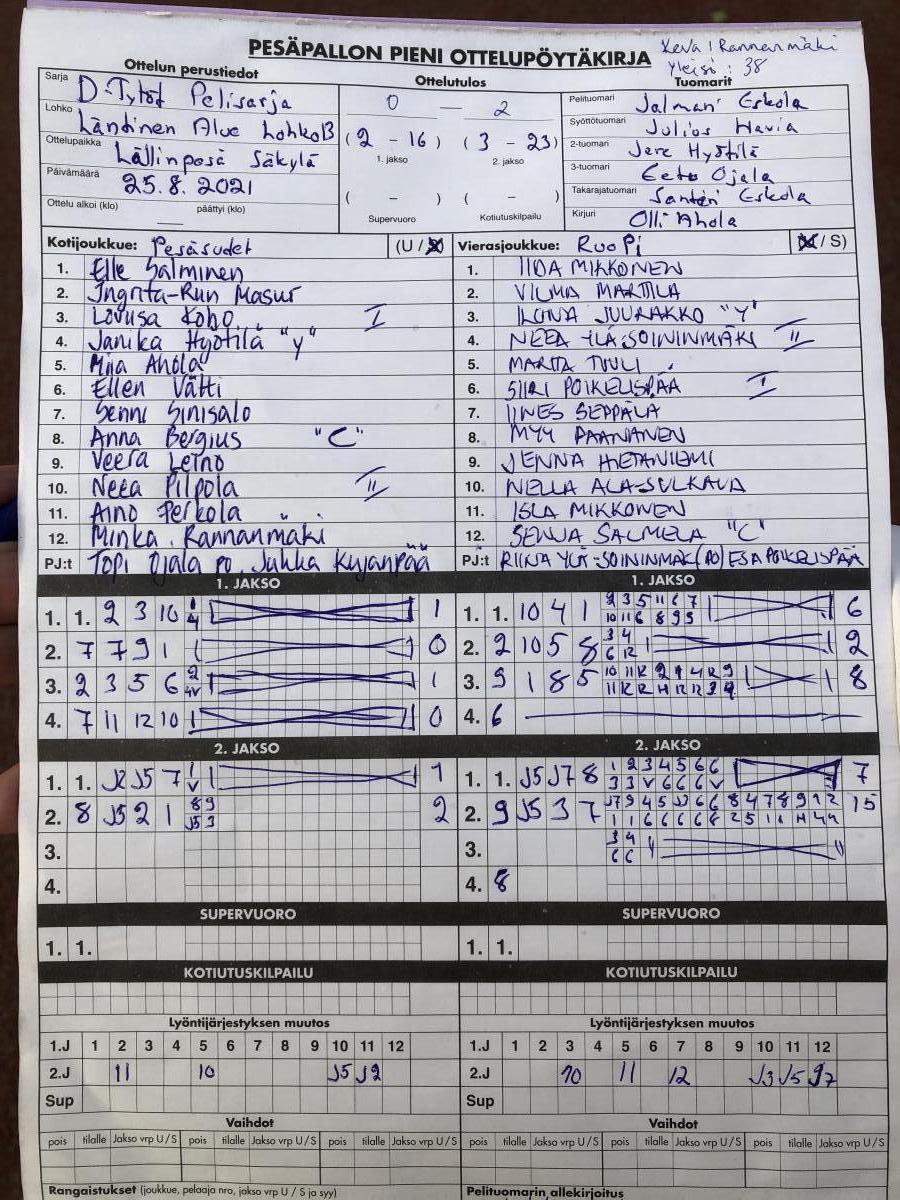 PESÄPALLON PIENI OTTELUPÖYTÄKIRJA
Keva / Rannanmäki
Yleisö : 38
Ottelun perustiedot
Sarja D-Tytöt Pelisarja
Lohko Läntinen Alue LohkoB
Ottelupaikka Lällinpesä Säkylä
Päivämäärä 25.8.2021
Ottelu alkoi (klo) päättyi (klo)
Ottelutulos
0 — 2
(2 - 16) (3 - 23)
1. jakso 2. jakso
( - ) ( - )
Supervuoro Kotiutuskilpailu
Tuomarit
Pelituomari Jalmari Eskola
Syöttötuomari Julios Havia
2-tuomari Jere Hyötilä
3-tuomari Eetu Ojala
Takarajatuomari Santeri Eskola
Kirjuri Olli Ahola
Kotijoukkue: Pesäsudet (U / S)
1. Elle Salminen
2. Ingrita-Run Masur
3. Lovusa Kobo I
4. Janika Hyötilä "Y"
5. Miia Ahola
6. Ellen Vätti
7. Senni Sinisalo
8. Anna Bergius "C"
9. Veera Leino
10. Neea Pilpola II
11. Aino Perkola
12. Minka Rannanmäki
PJ:t Topi Ojala po. Jukka Kujanpää
Vierasjoukkue: RuoPi (U / S)
1. IIDA MIKKONEN
2. VILMA MARTTILA
3. ILONA JUURAKKO "Y"
4. NEEA YLÄ-SOININMÄKI II
5. MARTTA TUULI
6. SIIRI POIKELISPÄÄ I
7. IINES SEPPÄLÄ
8. MYY PAANANEN
9. JENNA HIETANIEMI
10. NELLA ALA-SULKAVA
11. ISLA MIKKONEN
12. SENJA SALMELA "C"
PJ:t RIINA YLÄ-SOININMÄK (PO) ESA POIKELISPÄÄ
1. JAKSO
1. 1. 2 3 10 1
2. 7 7 9 1 0
3. 2 3 5 6 1
4. 7 11 12 10 0
1. JAKSO
1. 1. 10 4 1 2 3 5 11 6 7 6
10 11 6 8 9 5
2. 2 10 5 8 3 4 2
6 12
3. 9 1 8 5 8
4. 6
2. JAKSO
1. 1. J2 J5 7 1
2. 8 J5 2 1 8 9 2
J5 3
3.
4.
2. JAKSO
1. 1. J5 J7 8 1 2 3 4 5 6 6 7
3 3 V 6 6 6 V
2. 9 J5 3 7 15
3. 3 4
6 6
4. 8
SUPERVUORO
1. 1.
SUPERVUORO
1. 1.
KOTIUTUSKILPAILU
KOTIUTUSKILPAILU
Lyöntijärjestyksen muutos
1.J 1 2 3 4 5 6 7 8 9 10 11 12
2.J 11 10 J5 J2
Sup
Lyöntijärjestyksen muutos
1.J 1 2 3 4 5 6 7 8 9 10 11 12
2.J 10 11 12 J3 J5 J7
Sup
Vaihdot
pois tilalle Jakso vrp U / S pois tilalle Jakso vrp U / S pois tilalle Jakso vrp U / S
Vaihdot
pois tilalle Jakso vrp U / S pois tilalle Jakso vrp U / S pois tilalle Jakso vrp U / S
Rangaistukset (joukkue, pelaaja nro, jakso vrp U / S ja syy)
Pelituomarin allekirjoitus